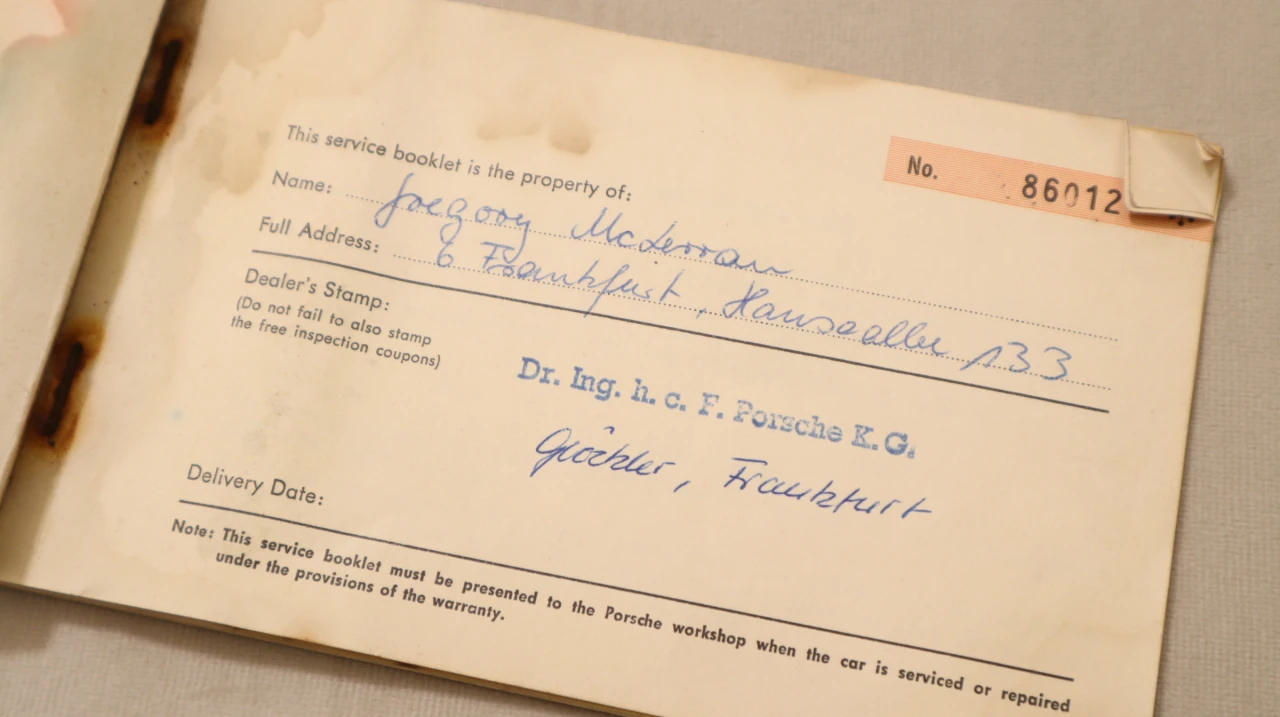 This service booklet is the property of:
No. 86012
Name: Gregory McLerran
Full Address: 6 Frankfurt, Hansaallee 133
Dealer's Stamp:
(Do not fail to also stamp
the free inspection coupons)
Dr. Ing. h. c. F. Porsche K.G.
Glöckler, Frankfurt
Delivery Date:
Note: This service booklet must be presented to the Porsche workshop when the car is serviced or repaired
under the provisions of the warranty.